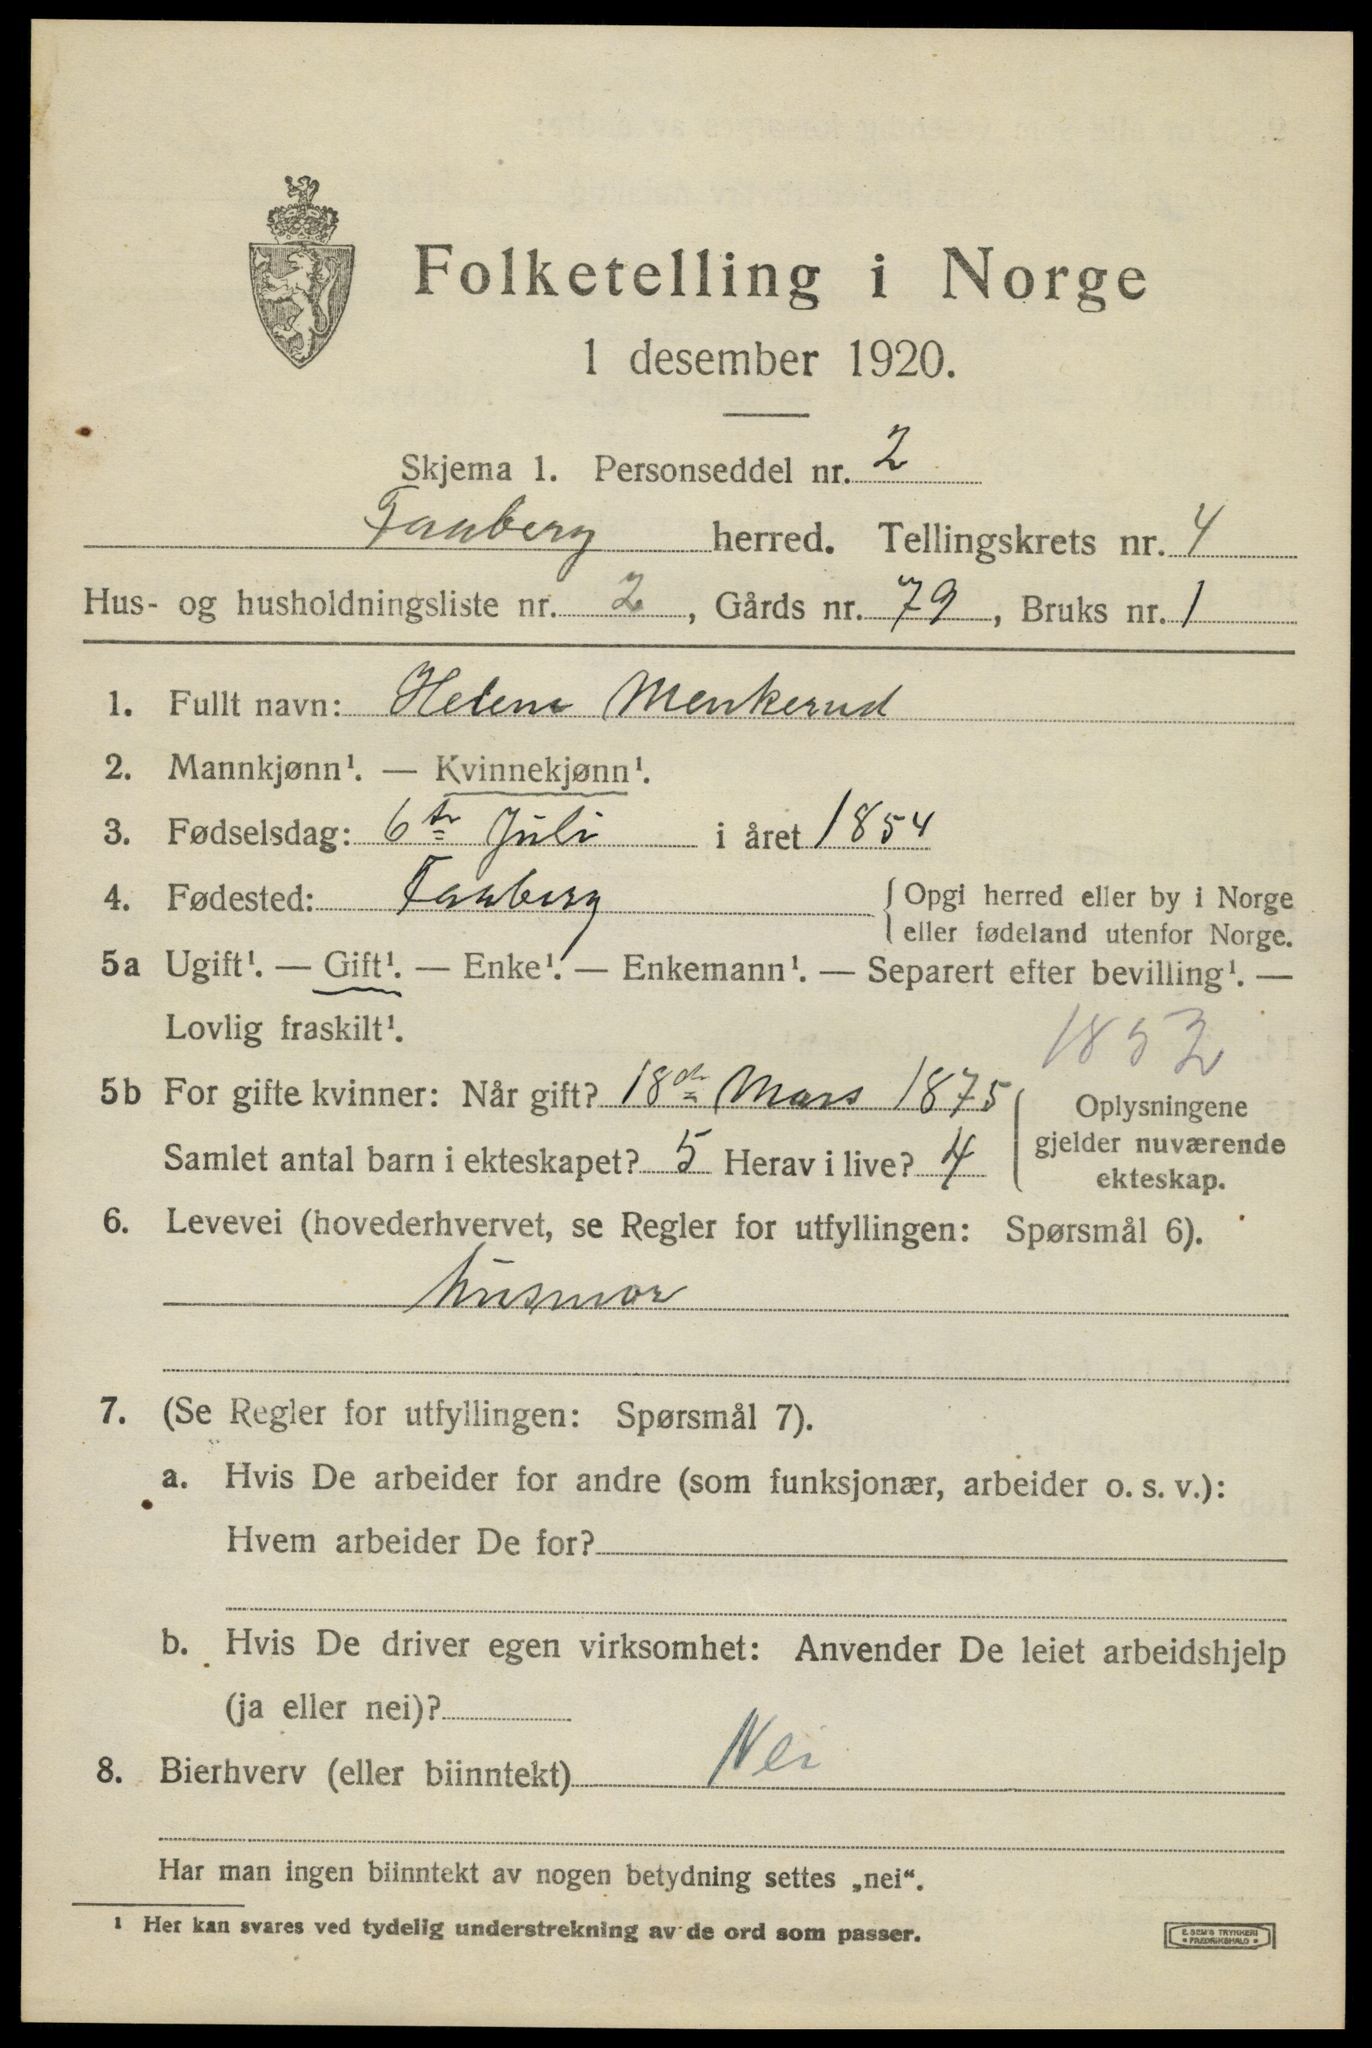 Folketelling i Norge
1 desember 1920.
Skjema 1. Personseddel nr. 2
Faaberg herred. Tellingskrets nr. 4
Hus- og husholdningsliste nr. 2, Gårds nr. 79, Bruks nr. 1
1. Fullt navn: Helene Menkerud
2. Mannkjønn¹. — Kvinnekjønn¹.
3. Fødselsdag: 6te Juli i året 1854
4. Fødested: Faaberg { Opgi herred eller by i Norge
eller fødeland utenfor Norge.
5a Ugift¹. — Gift¹. — Enke¹. — Enkemann¹. — Separert efter bevilling¹. —
Lovlig fraskilt¹.
1852
5b For gifte kvinner: Når gift? 18de Mars 1875
Samlet antal barn i ekteskapet? 5 Herav i live? 4
Oplysningene
gjelder nuværende
ekteskap.
6. Levevei (hovederhvervet, se Regler for utfyllingen: Spørsmål 6).
husmor
7. (Se Regler for utfyllingen: Spørsmål 7).
a. Hvis De arbeider for andre (som funksjonær, arbeider o. s. v.):
Hvem arbeider De for?
b. Hvis De driver egen virksomhet: Anvender De leiet arbeidshjelp
(ja eller nei)?
8. Bierhverv (eller biinntekt) Nei
Har man ingen biinntekt av nogen betydning settes „nei“.
¹ Her kan svares ved tydelig understrekning av de ord som passer.
E. SEM'S TRYKKERI
FREDRIKSHALD